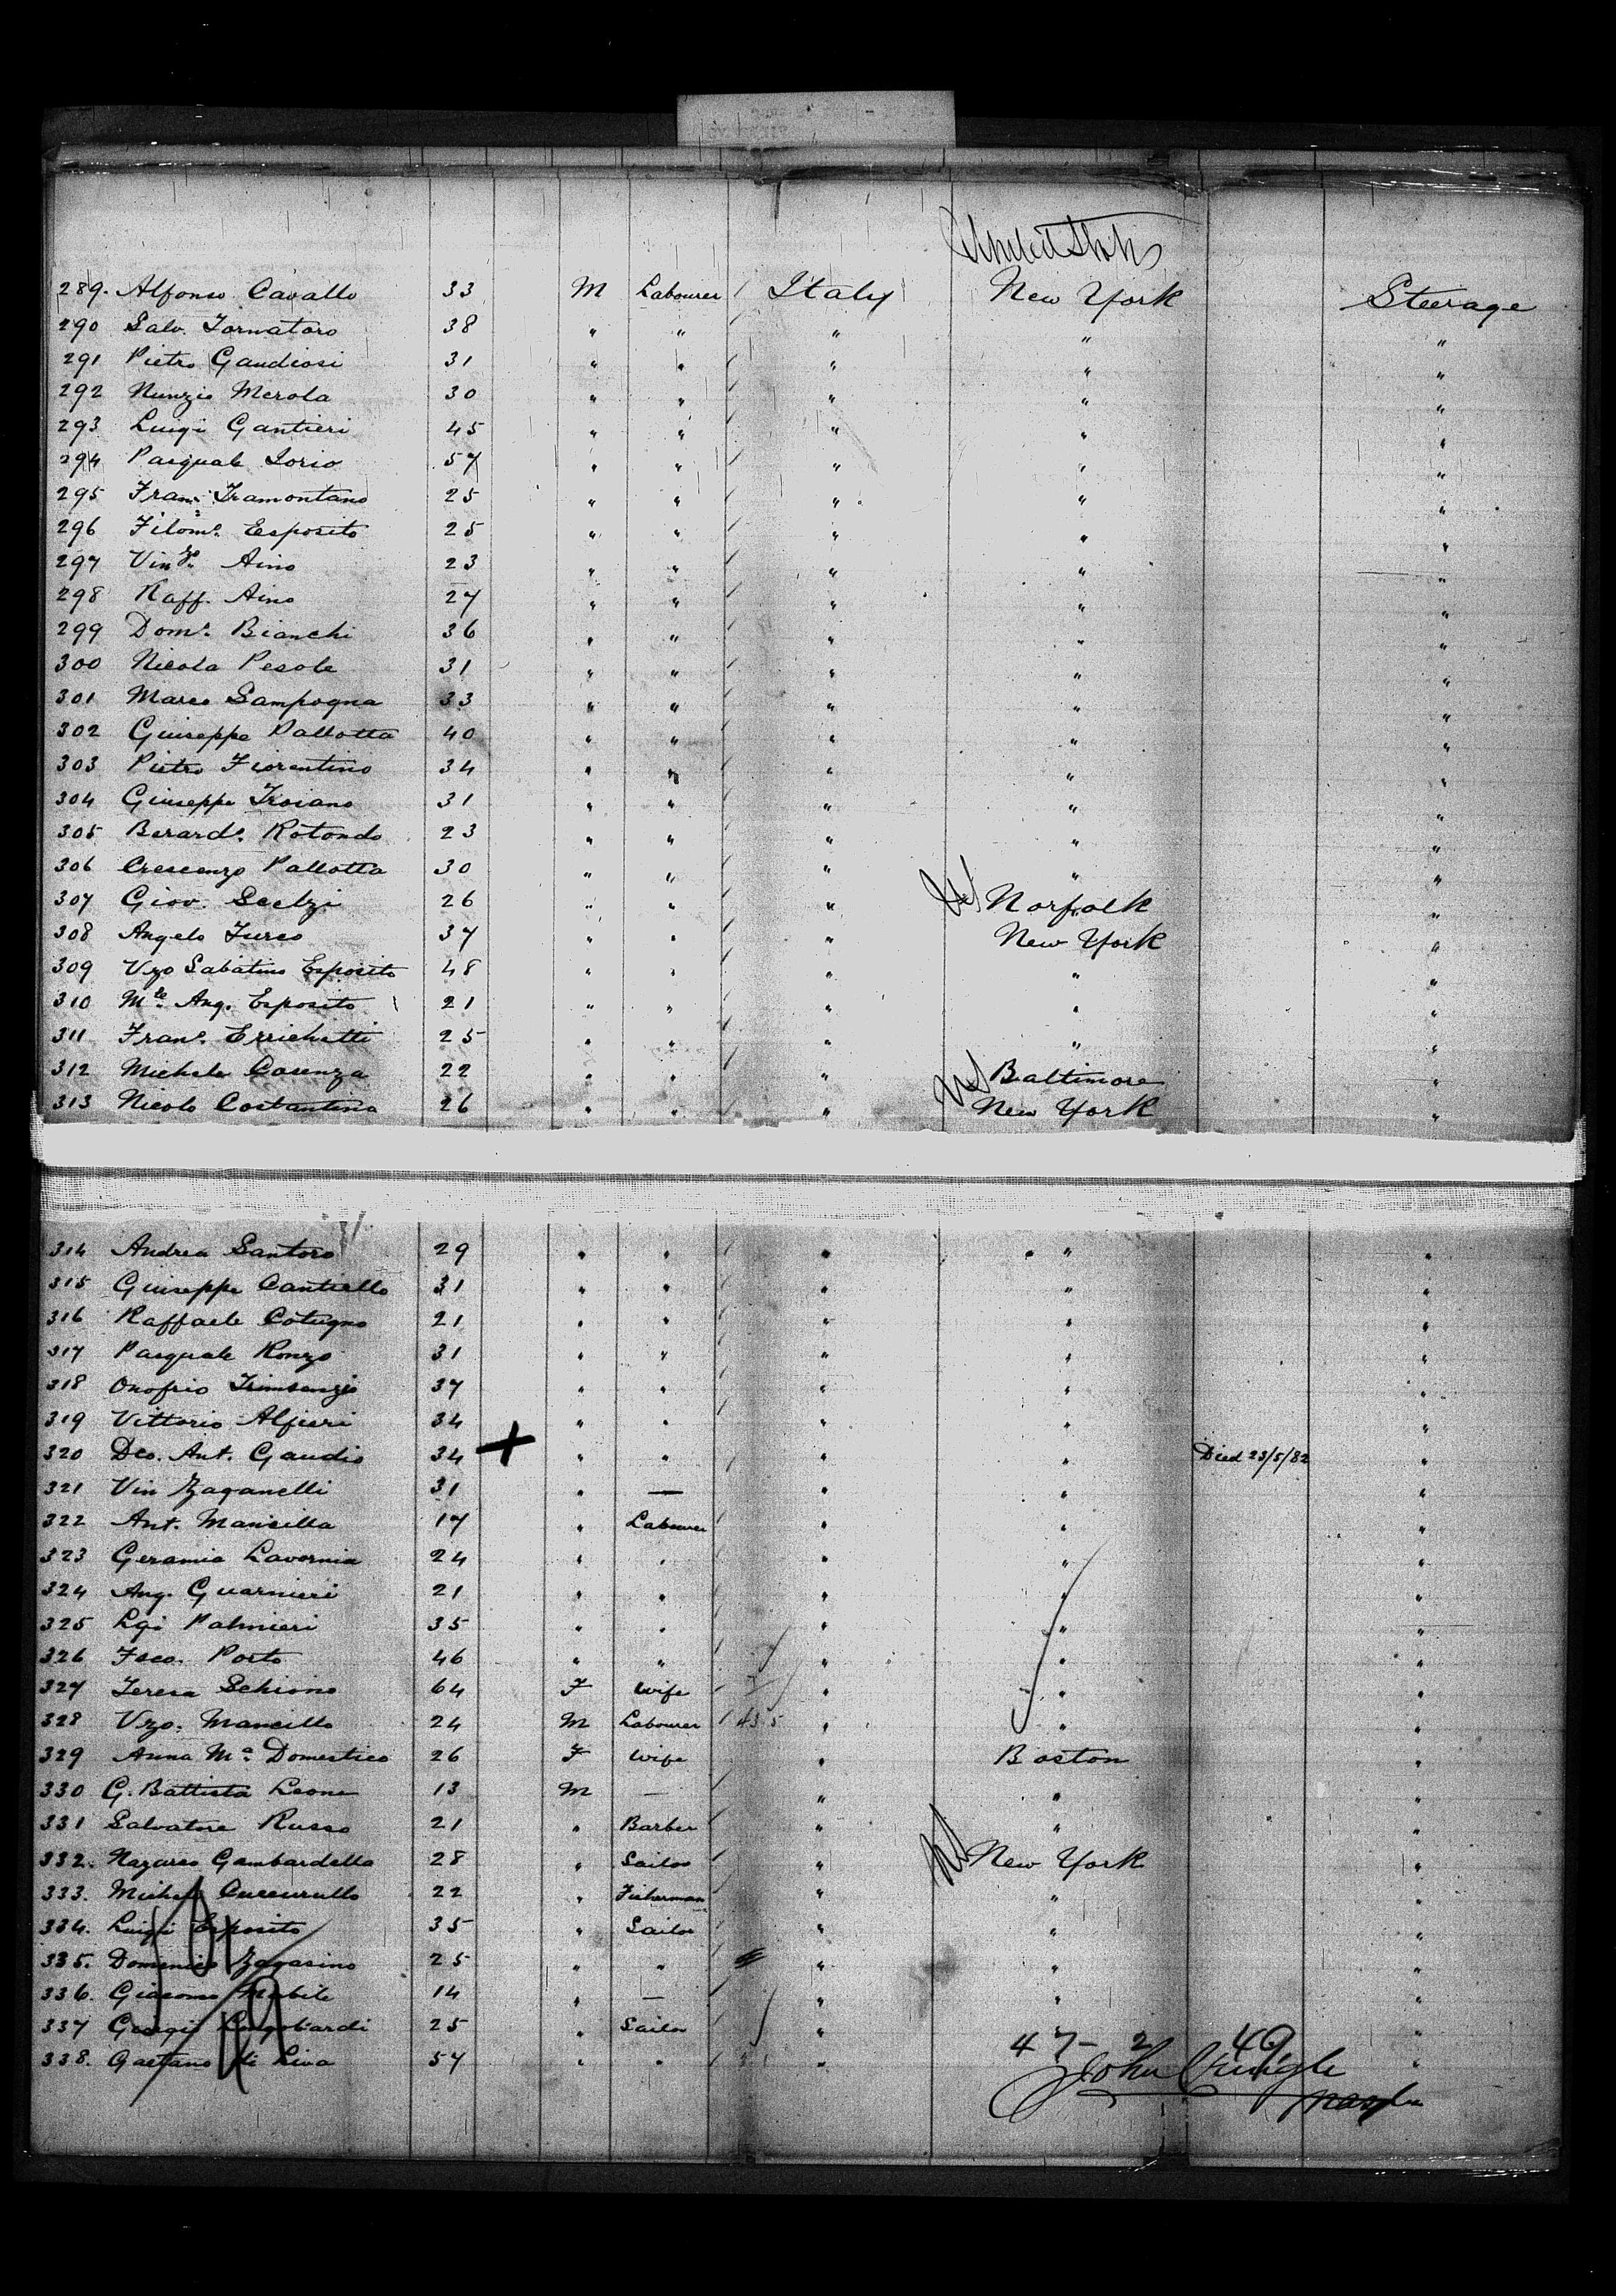 United States
289. Alfonso Cavallo 33 M Labourer / Italy New York Steerage
290 Salv. Tornatoro 38 " " / " " "
291 Pietro Gaudiosi 31 " " / " " "
292 Nunzio Merola 30 " " / " " "
293 Luigi Gantieri 45 " " / " " "
294 Pasquale Iorio 57 " " / " " "
295 Franc. Tramontano 25 " " / " " "
296 Filoma. Esposito 25 " " / " " "
297 Vinzo. Aino 23 " " / " " "
298 Raff. Aino 27 " " / " " "
299 Domo. Bianchi 36 " " / " " "
300 Nicola Pesole 31 " " / " " "
301 Marco Sampogna 33 " " / " " "
302 Giuseppe Pallotta 40 " " / " " "
303 Pietro Fiorentino 34 " " / " " "
304 Giuseppe Troiano 31 " " / " " "
305 Berardo. Rotondo 23 " " / " " "
306 Crescenzo Pallotta 30 " " / " " "
307 Giov. Scelzi 26 " " / " Norfolk "
308 Angelo Turco 37 " " / " New York "
309 Vzo Sabatino Esposito 48 " " / " " "
310 Mle. Ang. Esposito 21 " " / " " "
311 Frano. Errichetti 25 " " / " " "
312 Michele Cosenza 22 " " / " Baltimore "
313 Nicolo Costantino 26 " " / " New York "
314 Andrea Santoro 29 " " / " " "
315 Giuseppe Cantiello 31 " " / " " "
316 Raffaele Cotugno 21 " " / " " "
317 Pasquale Ronzo 31 " " / " " "
318 Onofrio 37 " " / " " "
319 Vittorio Alfieri 34 " " / " " "
320 Dco. Ant. Gaudio 34 + " " / " " Died 23/5/82 "
321 Vin Zaganelli 31 " — " " "
322 Ant. Mancilla 17 " Labourer / " " "
323 Geramia Lavornia 24 " " / " " "
324 Ang. Guarnieri 21 " " / " " "
325 Lgi Palmieri 35 " " / " " "
326 Fsco. Porto 46 " " / " " "
327 Teresa Schiono 64 F Wife / " " "
328 Vzo. Mancillo 24 M Labourer / 435 " " "
329 Anna Ma. Domestico 26 F Wife " Boston "
330 G. Battista Leone 13 M — / " " "
331 Salvatore Russo 21 " Barber / " " "
332. Nazareo Gambardella 28 " Sailor / " New York "
333. Michele Cuccurullo 22 " Fisherman / " " "
334. Luigi Esposito 35 " Sailor / " " "
335. Domenico Zagarino 25 " " / " " "
336. Giacomo Nobile 14 " — / " " "
337 Longobardi 25 " Sailor / " "
338. Gaetano di Liva 57 " " / " "
47- 2 49
John
Master